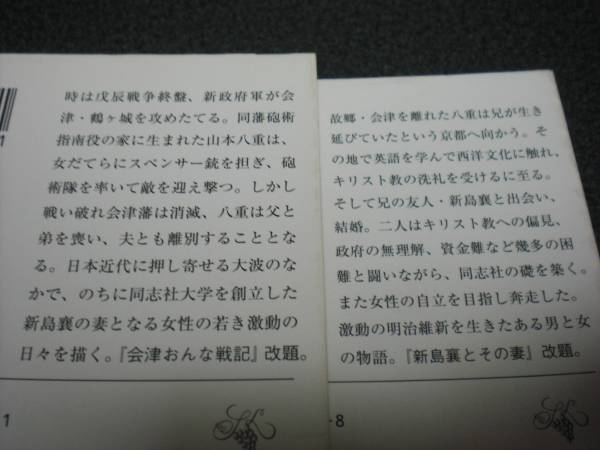 時は戊辰戦争終盤、新政府軍が会
津・鶴ヶ城を攻めたてる。同藩砲術
指南役の家に生まれた山本八重は、
女だてらにスペンサー銃を担ぎ、砲
術隊を率いて敵を迎え撃つ。しかし
戦い破れ会津藩は消滅、八重は父と
弟を喪い、夫とも離別することとな
る。日本近代に押し寄せる大波のな
かで、のちに同志社大学を創立した
新島襄の妻となる女性の若き激動の
日々を描く。『会津おんな戦記』改題。
1
1
故郷・会津を離れた八重は兄が生き
延びていたという京都へ向かう。そ
の地で英語を学んで西洋文化に触れ、
キリスト教の洗礼を受けるに至る。
そして兄の友人・新島襄と出会い、
結婚。二人はキリスト教への偏見、
政府の無理解、資金難など幾多の困
難と闘いながら、同志社の礎を築く。
また女性の自立を目指し奔走した。
激動の明治維新を生きたある男と女
の物語。『新島襄とその妻』改題。
-8